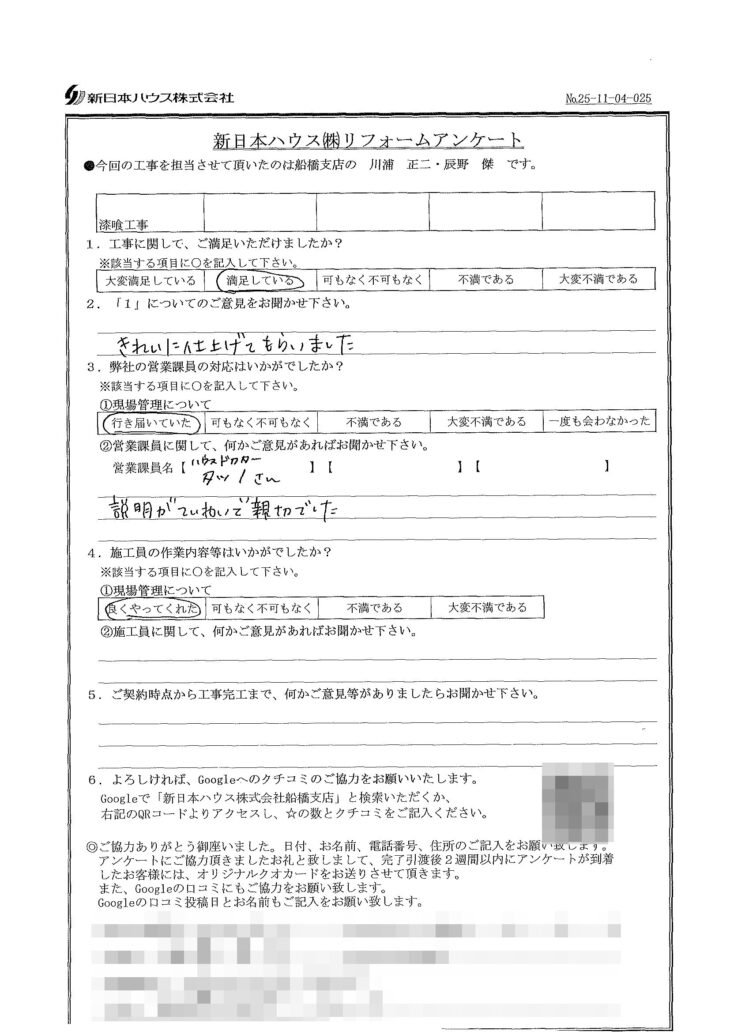 新日本ハウス株式会社
No.25-11-04-025
新日本ハウス㈱リフォームアンケート
●今回の工事を担当させて頂いたのは船橋支店の 川浦 正二・辰野 傑 です。
漆喰工事
1．工事に関して、ご満足いただけましたか？
※該当する項目に○を記入して下さい。
大変満足している 満足している 可もなく不可もなく 不満である 大変不満である
2．「1」についてのご意見をお聞かせ下さい。
きれいに仕上げてもらいました
3．弊社の営業課員の対応はいかがでしたか？
※該当する項目に○を記入して下さい。
①現場管理について
行き届いていた 可もなく不可もなく 不満である 大変不満である 一度も会わなかった
②営業課員に関して、何かご意見があればお聞かせ下さい。
ハウスドクター
営業課員名【 タツノさん 】【 】【 】
説明がていねいで親切でした
4．施工員の作業内容等はいかがでしたか？
※該当する項目に○を記入して下さい。
①現場管理について
良くやってくれた 可もなく不可もなく 不満である 大変不満である
②施工員に関して、何かご意見があればお聞かせ下さい。
5．ご契約時点から工事完工まで、何かご意見等がありましたらお聞かせ下さい。
6．よろしければ、Googleへのクチコミのご協力をお願いいたします。
Googleで「新日本ハウス株式会社船橋支店」と検索いただくか、
右記のQRコードよりアクセスし、☆の数とクチコミをご記入ください。
◎ご協力ありがとう御座いました。日付、お名前、電話番号、住所のご記入をお願い致します。
アンケートにご協力頂きましたお礼と致しまして、完了引渡後2週間以内にアンケートが到着
したお客様には、オリジナルクオカードをお送りさせて頂きます。
また、Googleの口コミにもご協力をお願い致します。
Googleの口コミ投稿日とお名前もご記入をお願い致します。